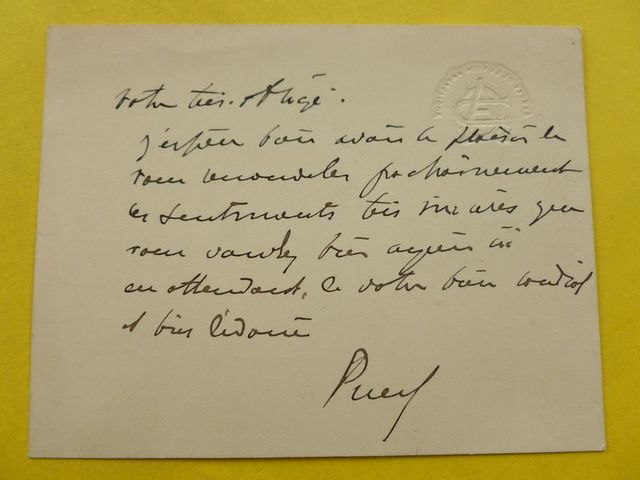 votre très obligé.
J'espère bien avoir le plaisir de
vous renouveler prochainement
les sentiments très sincères que
vous voudrez bien agréer ici
en attendant, de votre bien cordial
et bien dévoué